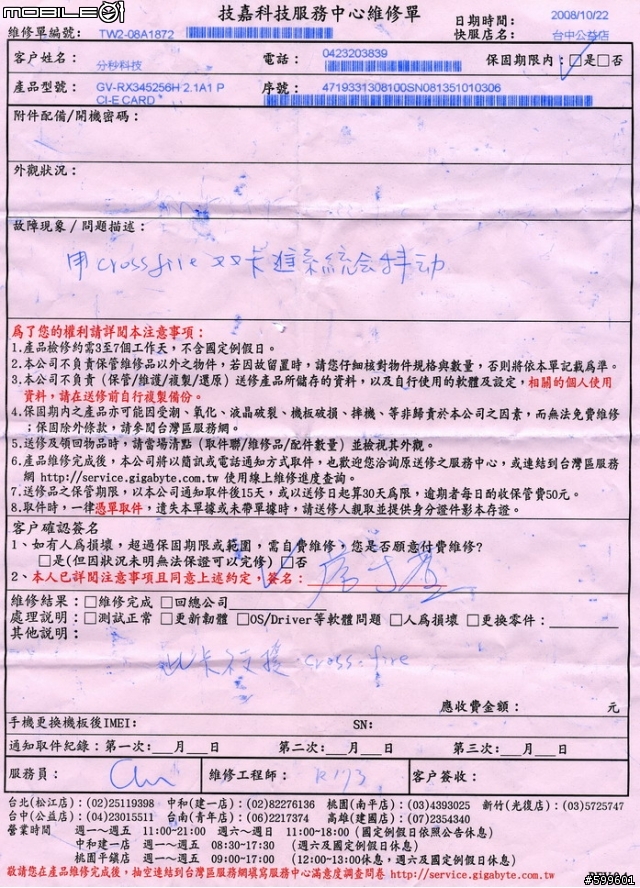 mobile01
技嘉科技服務中心維修單
維修單編號： TW2-08A1872
日期時間： 2008/10/22
快服店名： 台中公益店
客戶姓名： 分秒科技 電話： 0423203839 保固期限內：□是□否
產品型號： GV-RX345256H 2.1A1 P
CI-E CARD
序號： 4719331308100SN081351010306
附件配備/開機密碼：
外觀狀況：
故障現象/問題描述：
用crossfire 双卡進系統会抖动
為了您的權利請詳閱本注意事項：
1.產品檢修約需3至7個工作天，不含國定例假日。
2.本公司不負責保管維修品以外之物件，若因故留置時，請您仔細核對物件規格與數量，否則將依本單記載為準。
3.本公司不負責（保管/維護/複製/還原）送修產品所儲存的資料，以及自行使用的軟體及設定，相關的個人使用
資料，請在送修前自行複製備份。
4.保固期內之產品亦可能因受潮、氧化、液晶破裂、機板破損、摔機、等非歸責於本公司之因素，而無法免費維修
；保固除外條款，請參閱台灣區服務網。
5.送修及領回物品時，請當場清點（取件聯/維修品/配件數量）並檢視其外觀。
6.產品維修完成後，本公司將以簡訊或電話通知方式取件，也歡迎您洽詢原送修之服務中心，或連結到台灣區服務
網 http://service.gigabyte.com.tw 使用線上維修進度查詢。
7.送修品之保管期限，以本公司通知取件後15天，或以送修日起算30天為限，逾期者每日酌收保管費50元。
8.取件時，一律憑單取件，遺失本單據或未帶單據時，請送修人親取並提供身分證件影本存證。
客戶確認簽名
1、如有人為損壞，超過保固期限或範圍，需自費維修，您是否願意付費維修?
□是(但因狀況未明無法保證可以完修) □否
2、本人已詳閱注意事項且同意上述約定，簽名：
維修結果：□維修完成 □回總公司
處理說明：□測試正常 □更新韌體 □OS/Driver等軟體問題 □人為損壞 □更換零件：
其他說明：
此卡支援 cross-fire
應收費金額： 元
手機更換機板後IMEI： SN:
通知取件紀錄：第一次：__月__日 第二次：__月__日 第三次：__月__日
服務員： 維修工程師： 客戶簽收：
台北(松江店)：(02)25119398 中和(建一店)：(02)82276136 桃園(南平店)：(03)4393025 新竹(光復店)：(03)5725747
台中(公益店)：(04)23015511 台南(青年店)：(06)2217374 高雄(建國店)：(07)2354340
營業時間 週一～週五 11:00-21:00 週六～週日 11:00-18:00（國定例假日依照公告休息）
中和建一店 週一～週五 08:30-17:30 （週六及國定例假日休息）
桃園平鎮店 週一～週五 09:00-17:00 （12:00-13:00休息，週六及國定例假日休息）
敬請您在產品維修完成後，抽空連結到台灣區服務網填寫服務中心滿意度調查問卷 http://service.gigabyte.com.tw
#599601